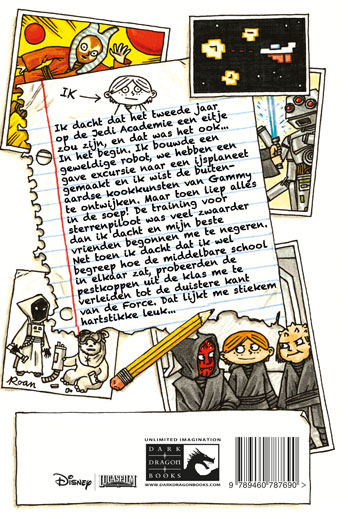 IK
Ik dacht dat het tweede jaar
op de Jedi Academie een eitje
zou zijn, en dat was het ook...
In het begin. Ik bouwde een
geweldige robot, we hebben een
gave excursie naar een ijsplaneet
gemaakt en ik wist de buiten-
aardse kookkunsten van Gammy
te ontwijken. Maar toen liep alles
in de soep! De training voor
sterrenpiloot was veel zwaarder
dan ik dacht en mijn beste
vrienden begonnen me te negeren.
Net toen ik dacht dat ik wel
begreep hoe de middelbare school
in elkaar zat, probeerden de
pestkoppen uit de klas me te
verleiden tot de duistere kant
van de Force. Dat lijkt me stiekem
hartstikke leuk...
ROAN
UNLIMITED IMAGINATION
DARK
DRAGON
BOOKS
WWW.DARKDRAGONBOOKS.COM
Disney
LUCASFILM
9 789460 787690 >